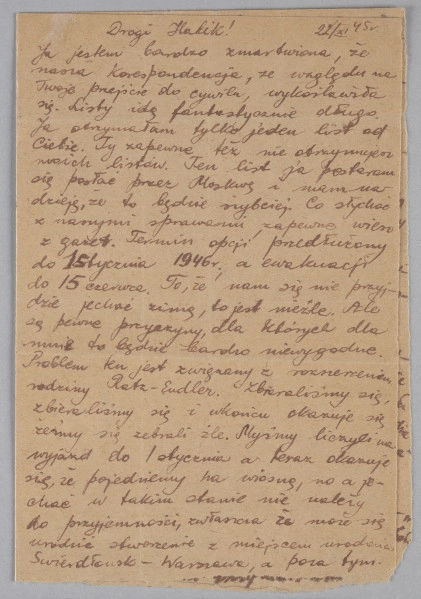 Drogi Halik! 22/XI 45r
Ja jestem bardzo zmartwiona, że
nasza korespondencja, ze względu na
Twoje przejście do cywila, wykoślawiła
się. Listy idą fantastycznie długo.
Ja otrzymałam tylko jeden list od
Ciebie. Ty zapewne też nie otrzymujesz
moich listów. Ten list ja postaram
się posłać przez Moskwę i mam na-
dzieję, że to będzie szybciej. Co słychać
z naszymi sprawami, zapewne wiesz
z gazet. Termin opcji przedłużony
do 1 stycznia 1946r, a ewakuacji
do 15 czerwca. To, że nam się nie przyj-
dzie jechać zimą, to jest nieźle. Ale
są pewne przyczyny, dla których dla
mnie to będzie bardzo niewygodne.
Problem ten jest związany z rozszerzeniem
rodziny Ratz-Endler. Zbieraliśmy się,
zbieraliśmy się i wkońcu okazuje się
żeśmy się zebrali źle. Myśmy liczyli na
wyjazd do 1 stycznia a teraz okazuje
się, że pojedziemy na wiosnę, no a je-
chać w takim stanie nie należy
do przyjemności, zwłaszcza że może się
urodzić stworzenie z miejscem urodzenia
Swierdłowsk - Warszawa, a poza tym.